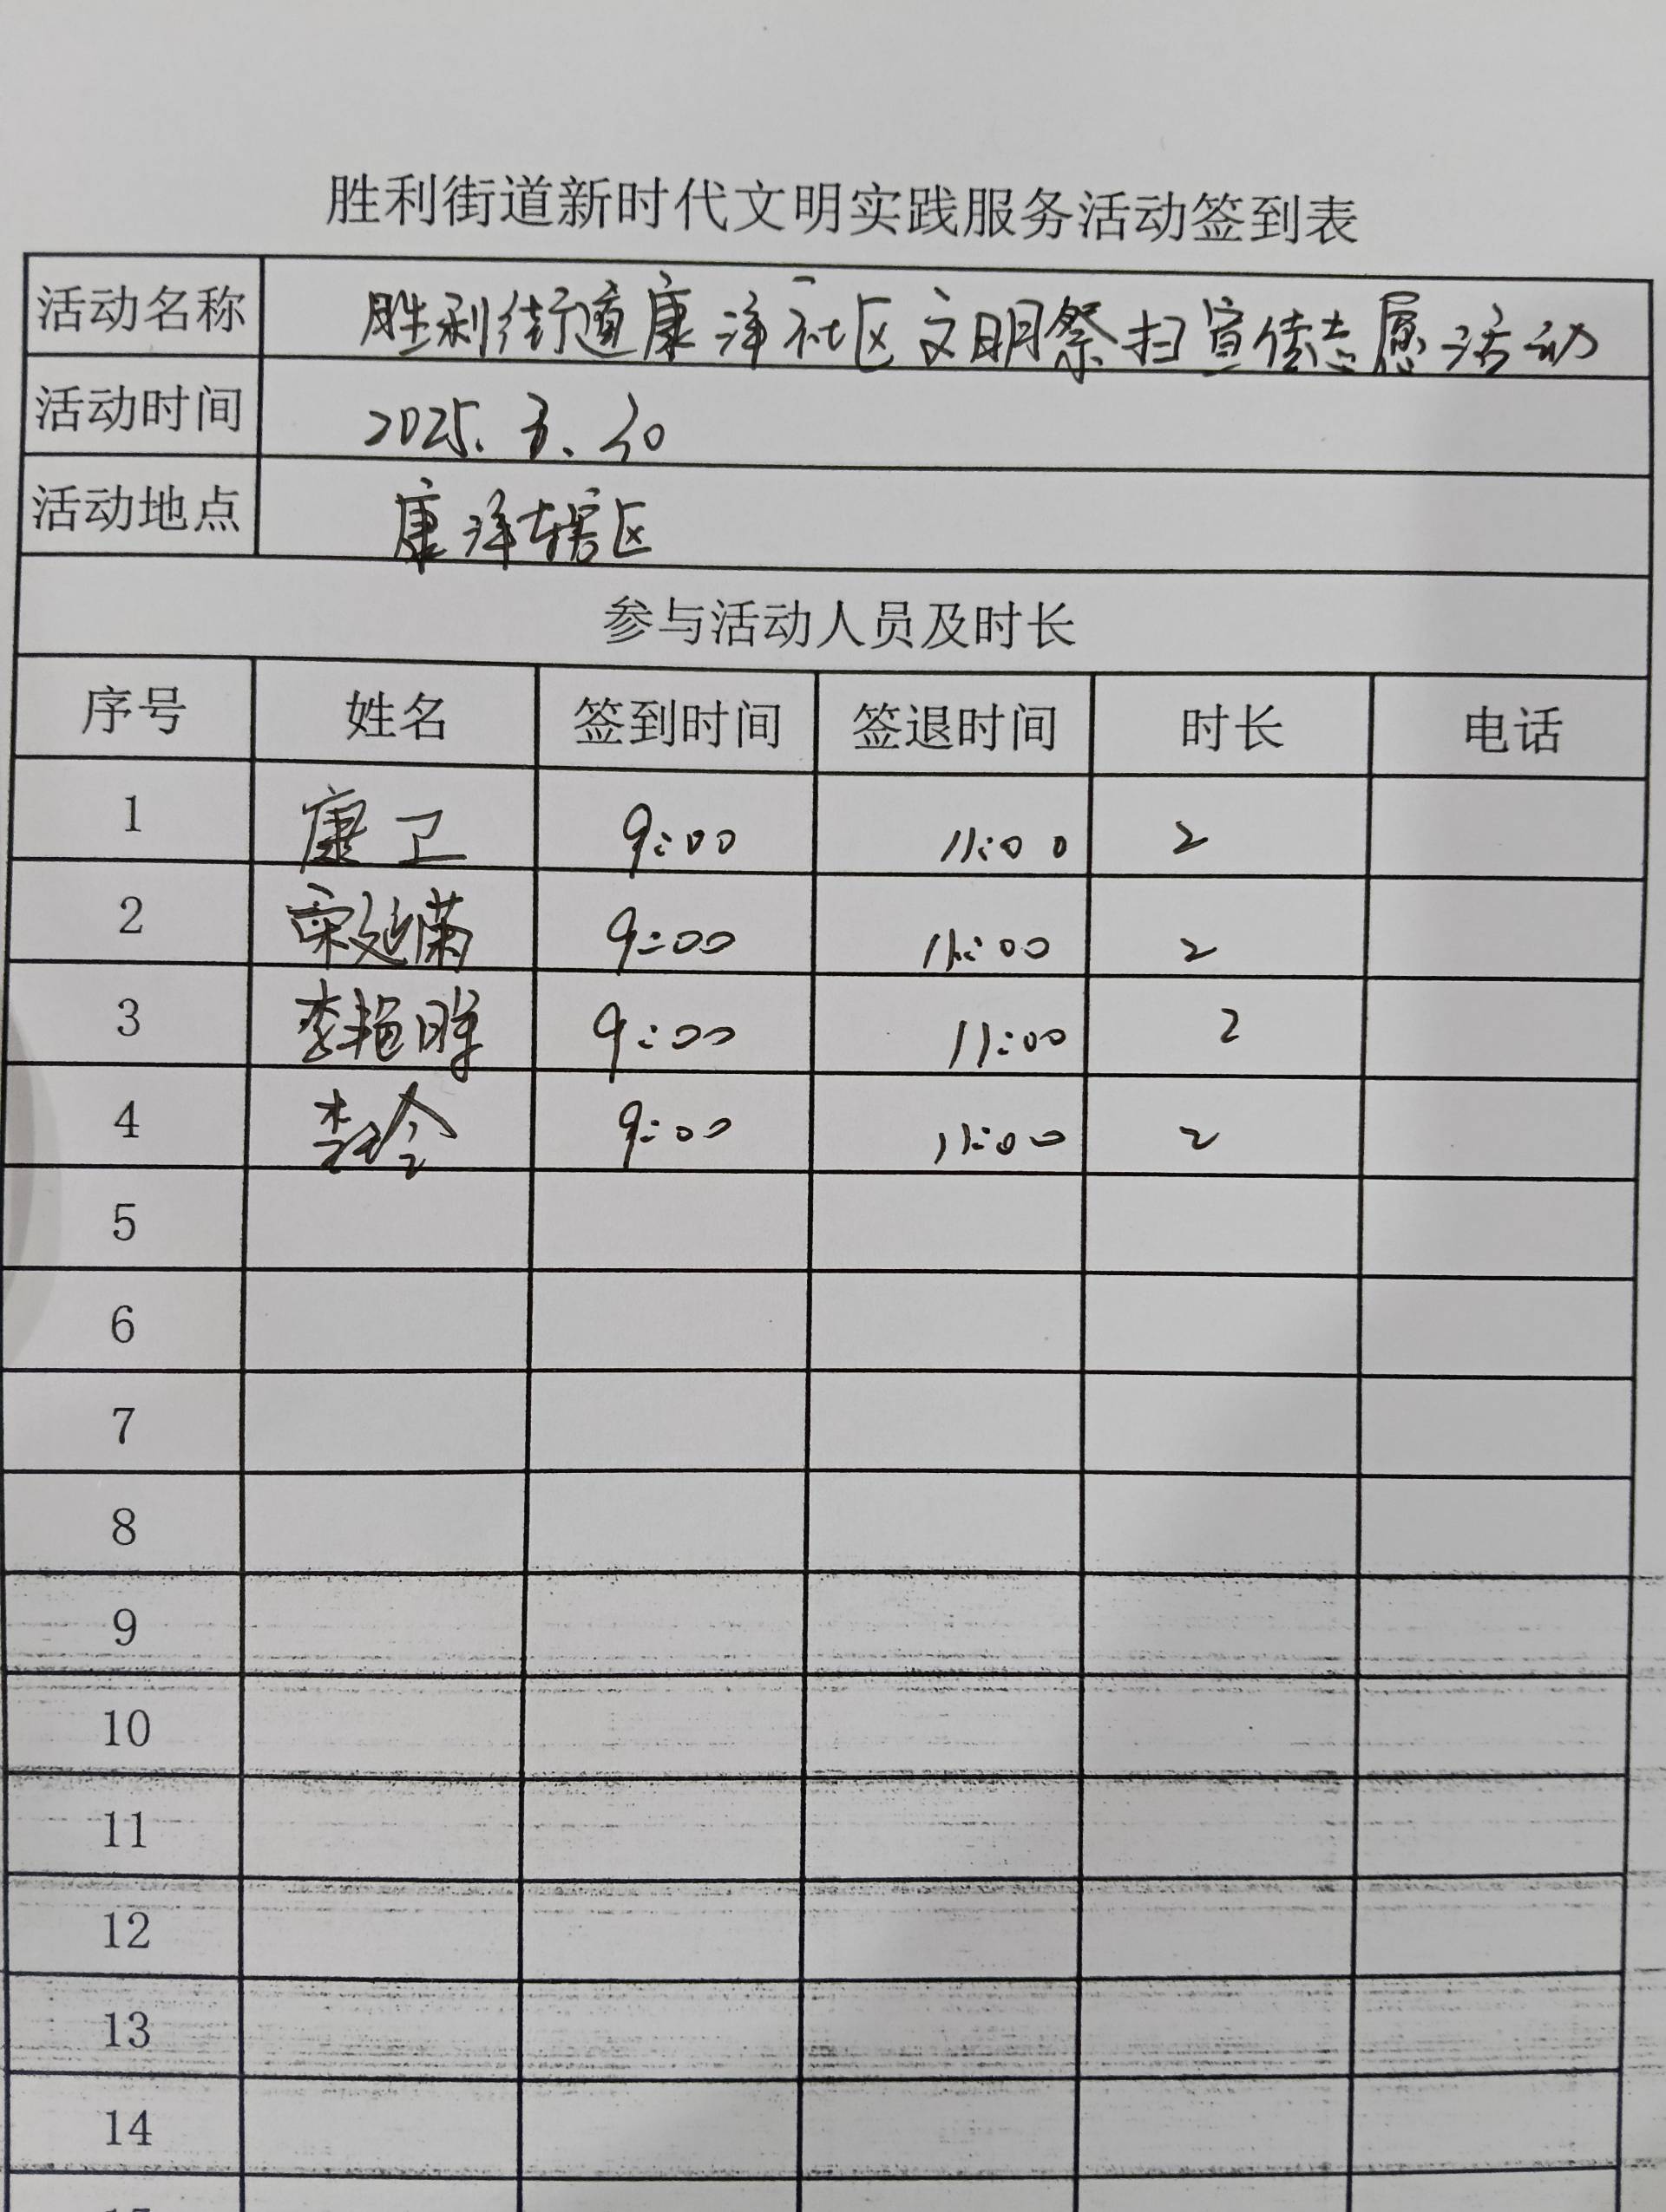 胜利街道新时代文明实践服务活动签到表
活动名称 胜利街道康洋社区文明祭扫宣传志愿活动
活动时间 2025.3.30
活动地点 康洋辖区
参与活动人员及时长
序号 姓名 签到时间 签退时间 时长 电话
1 康卫 9:00 11:00 2
2 宋延满 9:00 11:00 2
3 李艳 9:00 11:00 2
4 9:00 11:00 2
5
6
7
8
9
10
11
12
13
14